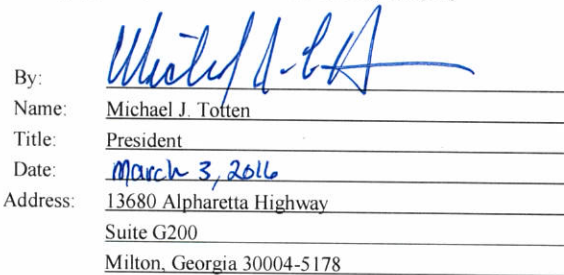 By:
Name: Michael J. Totten
Title: President
Date: March 3, 2016
Address: 13680 Alpharetta Highway
Suite G200
Milton, Georgia 30004-5178